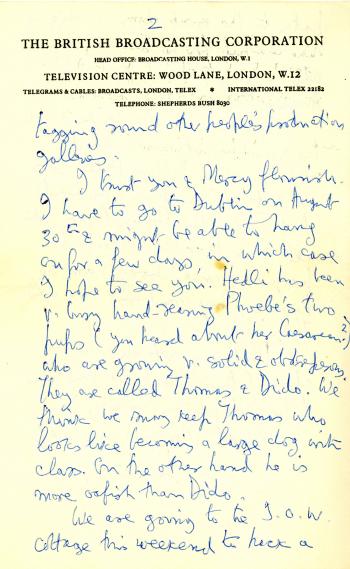 2
THE BRITISH BROADCASTING CORPORATION
HEAD OFFICE: BROADCASTING HOUSE, LONDON, W.1
TELEVISION CENTRE: WOOD LANE, LONDON, W.12
TELEGRAMS & CABLES: BROADCASTS, LONDON, TELEX * INTERNATIONAL TELEX 22182
TELEPHONE: SHEPHERDS BUSH 8030
round other people's production
galleries.
I trust you & Mercy flourish.
I have to go to Dublin on August
30th & might be able to hang
on for a few days, in which case
I hope to see you. Hedli has been
v. busy hand-rearing Phoebe's two
pups (you heard about her Caesarean?)
who are growing v. solid &
They are called Thomas & Dido. We
think we may keep Thomas who
looks like becoming a large dog with
class. On the other hand he is
more oafish than Dido.
We are going to the I.O.W.
cottage this weekend to hack a